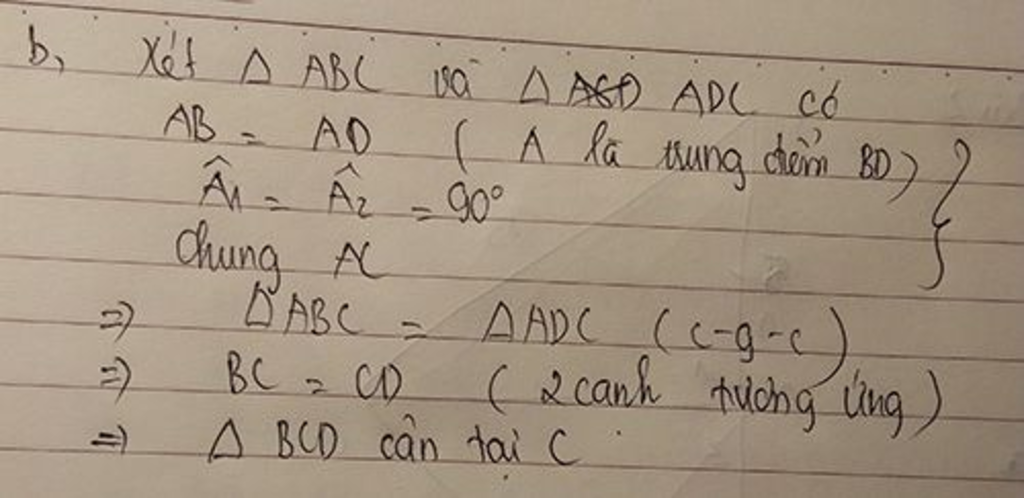 b, Xét Δ ABC và Δ ADC có
AB = AD ( A là trung điểm BD)
Â1 = Â2 = 90°
Chung AC
=> ΔABC = ΔADC (c-g-c)
=> BC = CD ( 2 canh tương ứng )
=> Δ BCD cân tai C